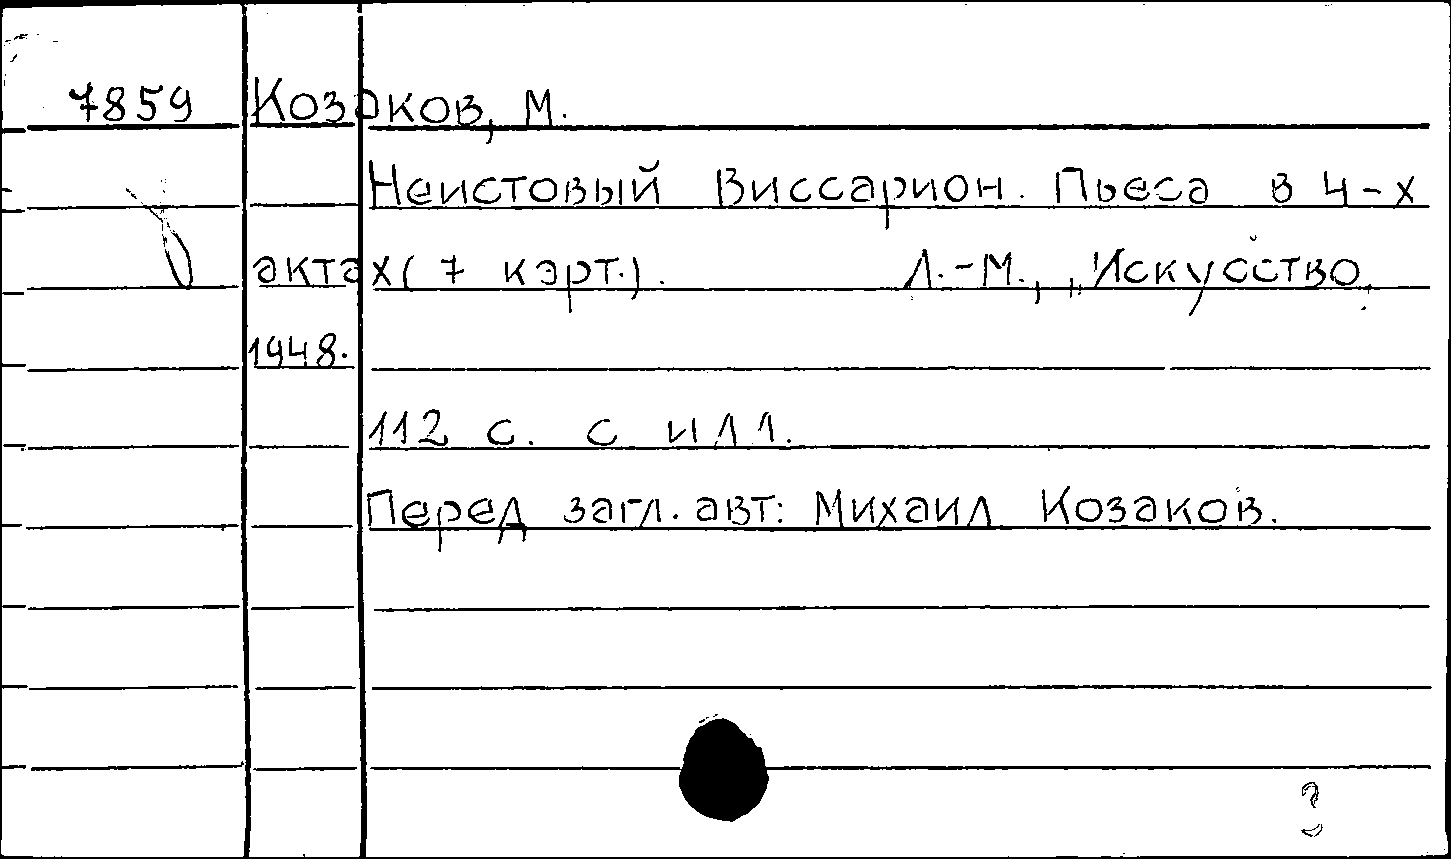 7859 Козаков, М.
Неистовый Виссарион. Пьеса в 4-х
актах (7 карт.). Л.-М., „Искусство,
1948.
112 с. с илл.
Перед загл. авт: Михаил Козаков.
?